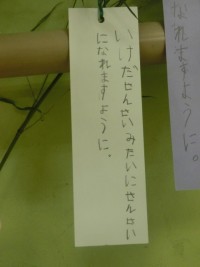 いけだせんせいみたいにせんせい
になれますように。
なれますように。